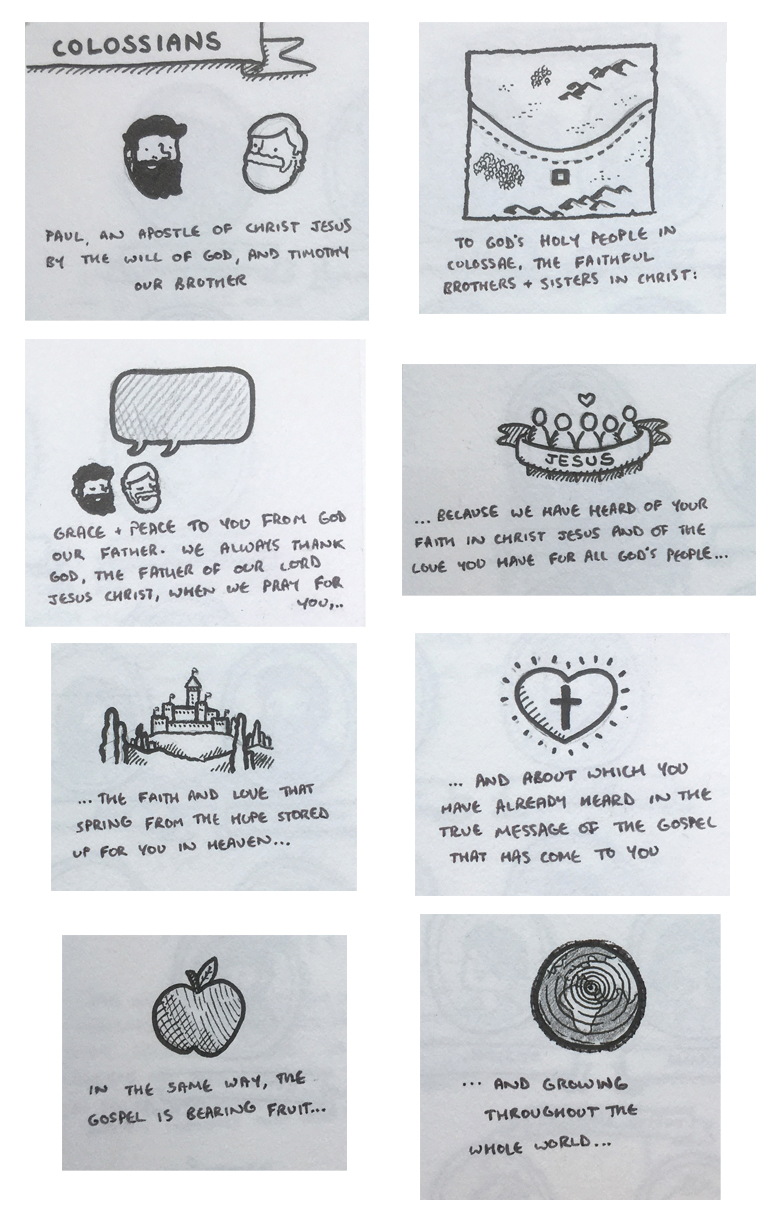 COLOSSIANS
PAUL, AN APOSTLE OF CHRIST JESUS
BY THE WILL OF GOD, AND TIMOTHY
OUR BROTHER
TO GOD'S HOLY PEOPLE IN
COLOSSAE, THE FAITHFUL
BROTHERS + SISTERS IN CHRIST:
GRACE + PEACE TO YOU FROM GOD
OUR FATHER. WE ALWAYS THANK
GOD, THE FATHER OF OUR LORD
JESUS CHRIST, WHEN WE PRAY FOR
YOU,..
JESUS
... BECAUSE WE HAVE HEARD OF YOUR
FAITH IN CHRIST JESUS AND OF THE
LOVE YOU HAVE FOR ALL GOD'S PEOPLE...
... THE FAITH AND LOVE THAT
SPRING FROM THE HOPE STORED
UP FOR YOU IN HEAVEN...
... AND ABOUT WHICH YOU
HAVE ALREADY HEARD IN THE
TRUE MESSAGE OF THE GOSPEL
THAT HAS COME TO YOU
IN THE SAME WAY, THE
GOSPEL IS BEARING FRUIT...
... AND GROWING
THROUGHOUT THE
WHOLE WORLD...